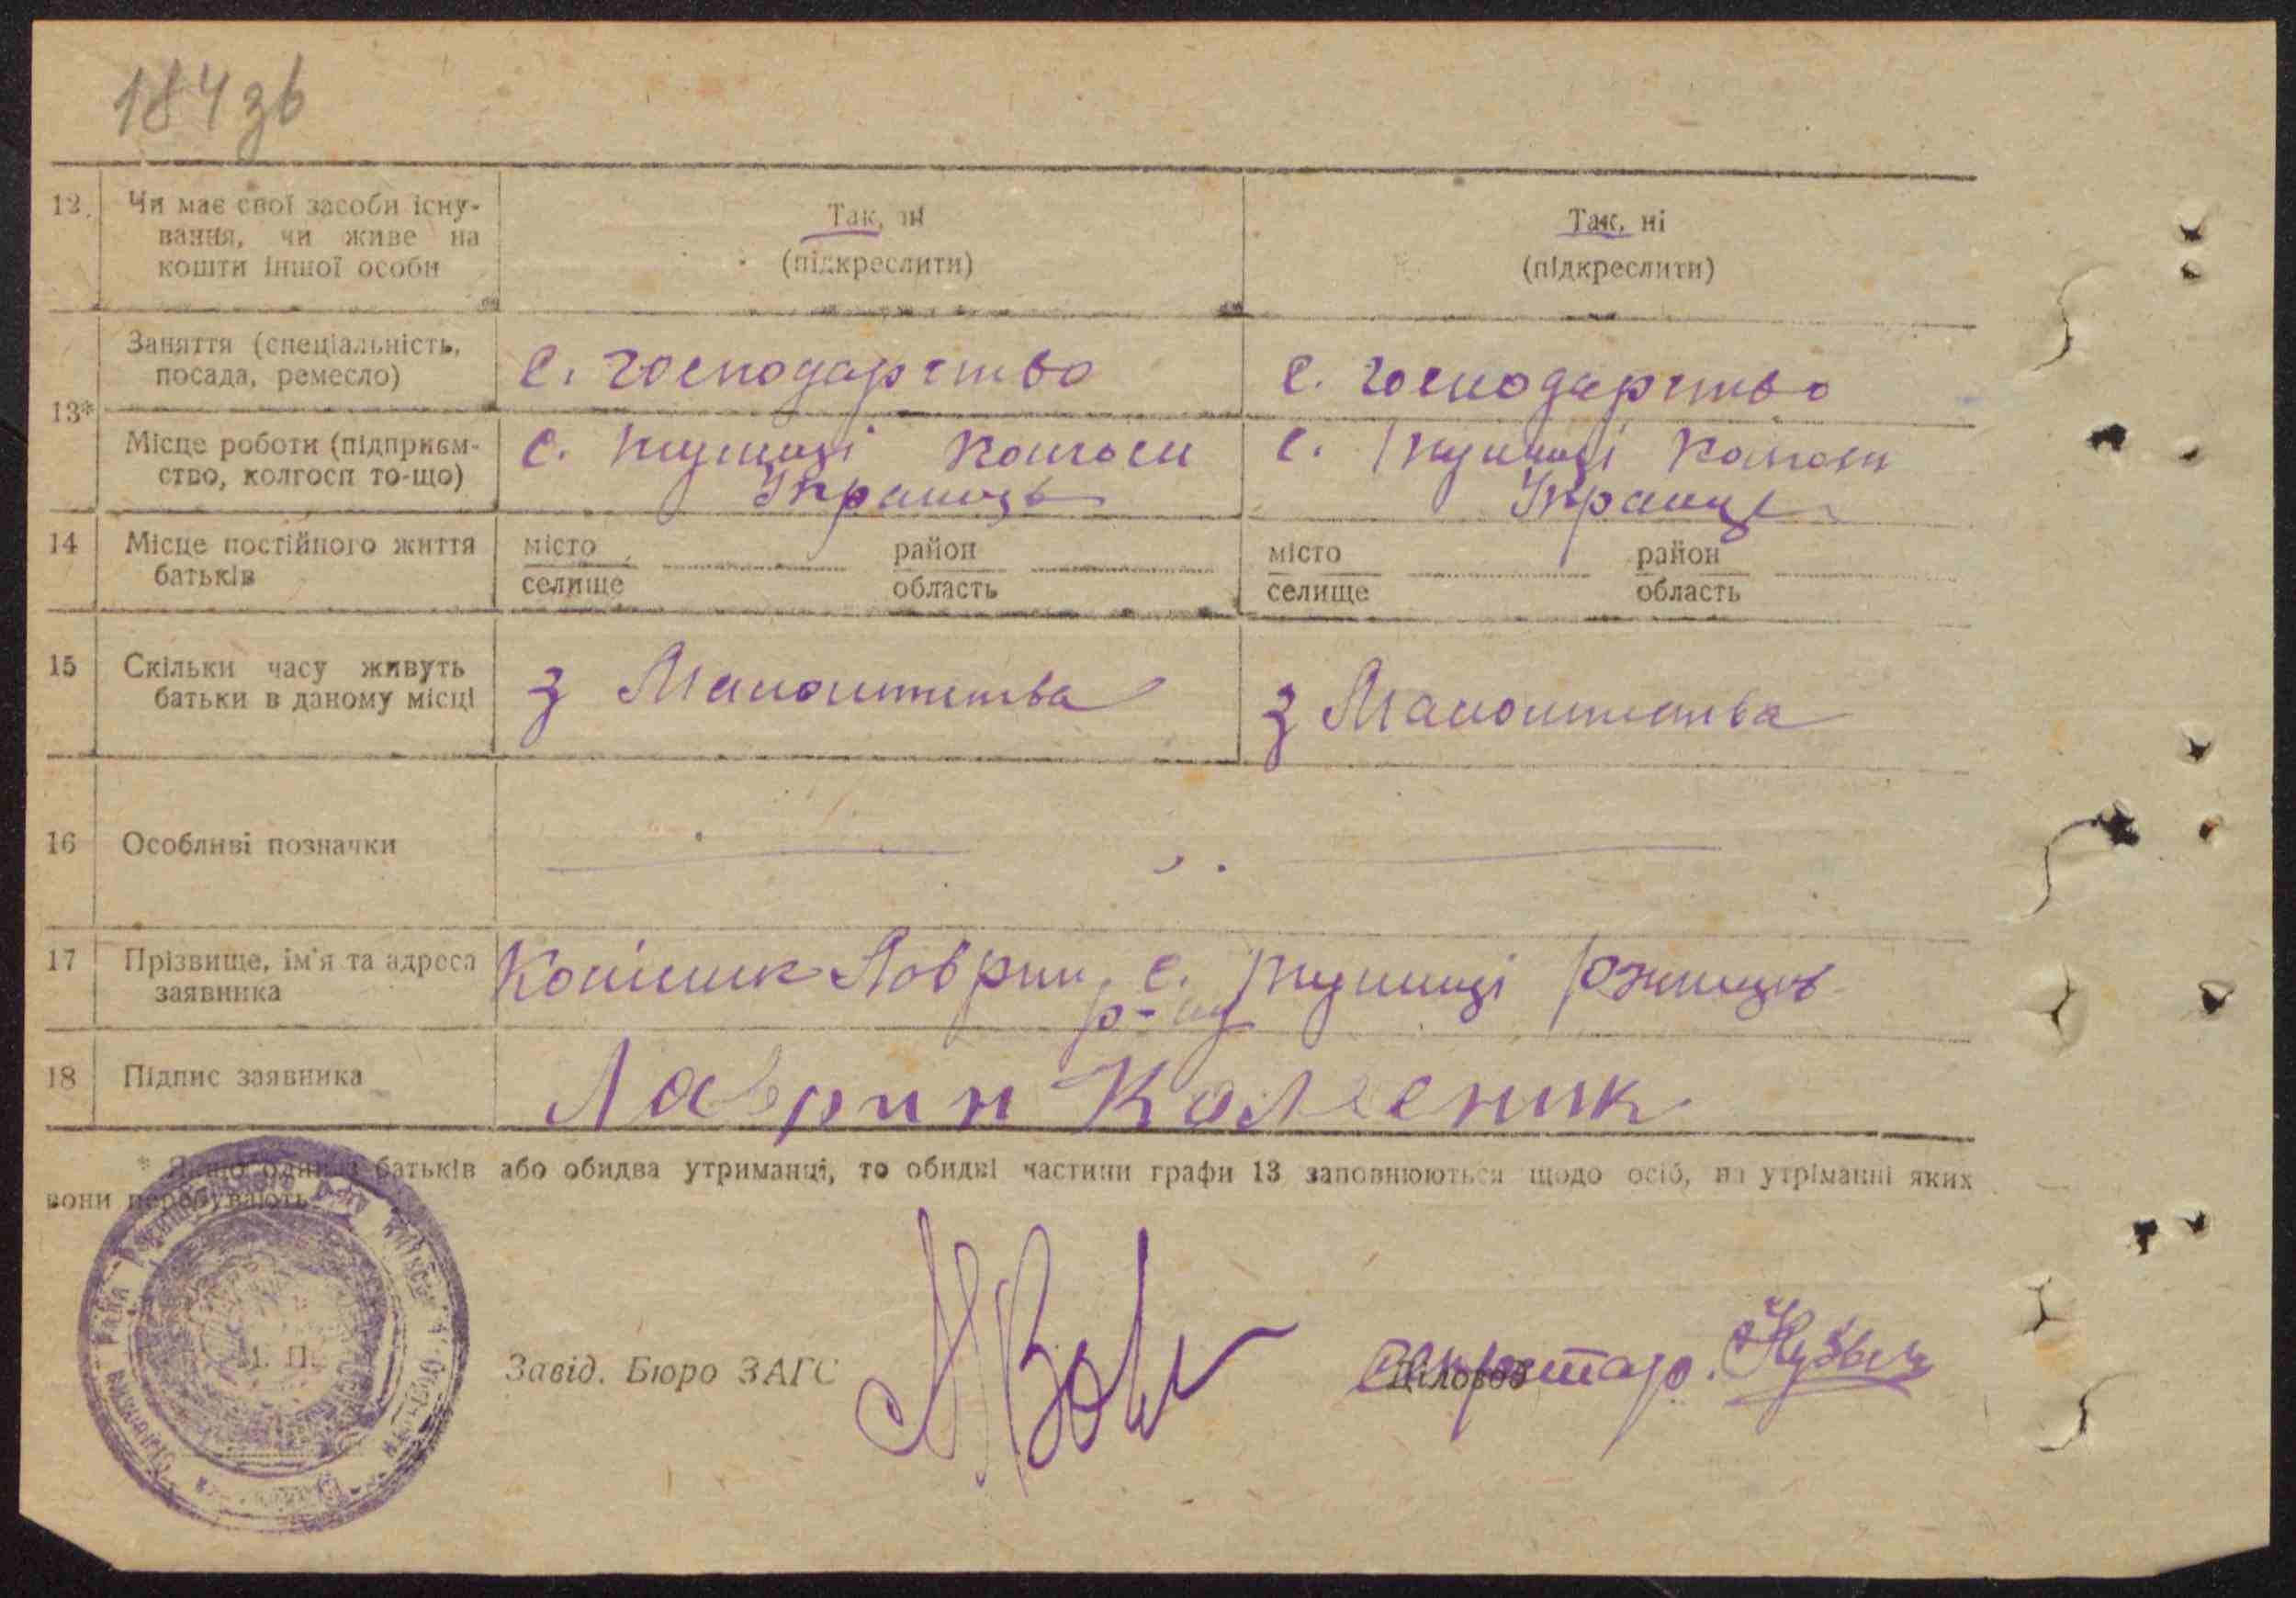 184 зв
12. Чи має свої засоби існу-
вання, чи живе на
кошти іншої особи
Так, ні
(підкреслити)
Так, ні
(підкреслити)
13*
Заняття (спеціальність,
посада, ремесло)
С. господарство
С. господарство
Місце роботи (підприєм-
ство, колгосп то-що)
с. Тушиці Колгосп
с. Тушиці Колгосп
14 Місце постійного життя
батьків
місто район
селище область
місто район
селище область
15 Скільки часу живуть
батьки в даному місці
з Малолітства
з Малолітства
16 Особливі позначки
17 Прізвище, ім'я та адреса
заявника
Колісник Лаврин, с. Тушиці Рожищ.
р-ну
18 Підпис заявника
Лаврин Колесник
* Якщо один з батьків або обидва утриманці, то обидві частини графи 13 заповнюються щодо осіб, на утріманні яких
вони перебувають
М. П.
Завід. Бюро ЗАГС
Діловод
секретар.